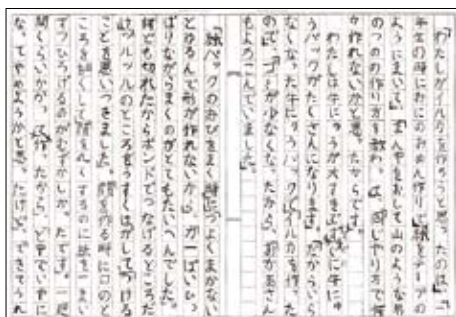 「わたしがイルカを作ろうと思ったのは、一
年生の時におにのおめん作りで紙とテープの
ようにまいて、まん中をおして山のような形
のつのの作り方を教わって、同じやり方で何
か作れないかと思ったからです。
わたしは牛にゅうが大すきですぐに牛にゅ
うパックがたくさんになります。だからいら
なくなった牛にゅうパックでイルカを作った
ので、ゴミが少なくなったから、お母さん
もよろこんでいました。
紙パックのおびをまく時につよくまかない
とゆるんで形が作れないから、力一ぱいひっ
ぱりながらまくのがとてもたいへんでした。
何ども切れたからボンドでつなげるところだ
けツルツルのところをうすくはがしてつける
ことを思いつきました。顔を作る時に口のと
ころを細くして顔を丸くするのに紙を一まい
ずつひろげるのがむずかしかったです。一週
間くらいかかって作ったから、と中でいやに
なってやめようかと思ったけど、できてうれ